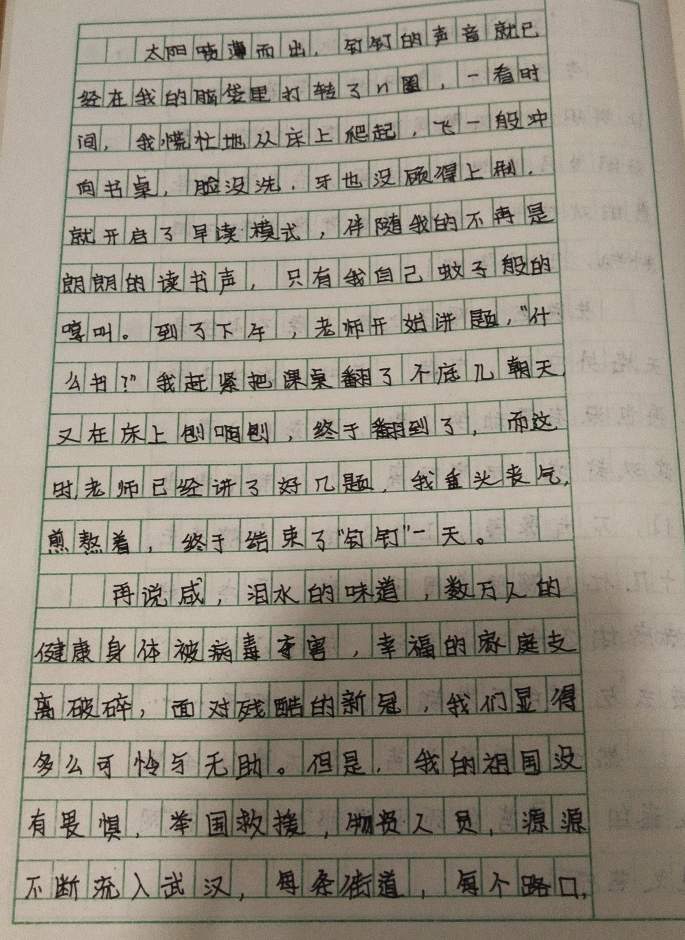 太阳喷薄而出，钉钉的声音就已
经在我的脑袋里打转了n圈，一看时
间，我慌忙地从床上爬起，飞一般冲
向书桌，脸没洗，牙也没顾得上刷，
就开启了早读模式，伴随我的不再是
朗朗的读书声，只有我自己蚊子般的
嗡叫。到了下午，老师开始讲题，“什
么书？”我赶紧把课桌翻了个底儿朝天，
又在床上刨啊刨，终于翻到了，而这
时老师已经讲了好几题，我垂头丧气，
煎熬着，终于结束了“钉钉”一天。
再说咸，泪水的味道，数万人的
健康身体被病毒夺害，幸福的家庭支
离破碎，面对残酷的新冠，我们显得
多么可怜与无助。但是，我的祖国没
有畏惧，举国救援，物资人员，源源
不断流入武汉，每条街道，每个路口，